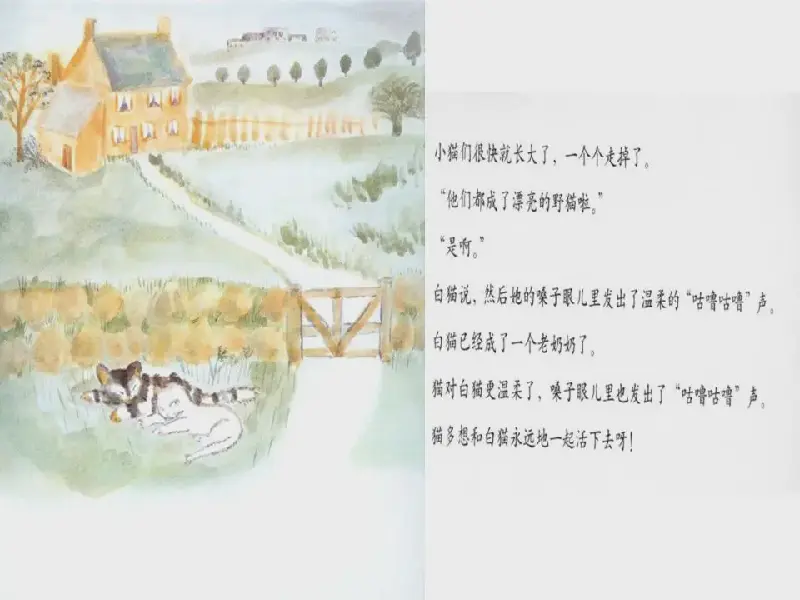 小猫们很快就长大了，一个个走掉了。
“他们都成了漂亮的野猫啦。”
“是啊。”
白猫说，然后她的嗓子眼儿里发出了温柔的“咕噜咕噜”声。
白猫已经成了一个老奶奶了。
猫对白猫更温柔了，嗓子眼儿里也发出了“咕噜咕噜”声。
猫多想和白猫永远地一起活下去呀！